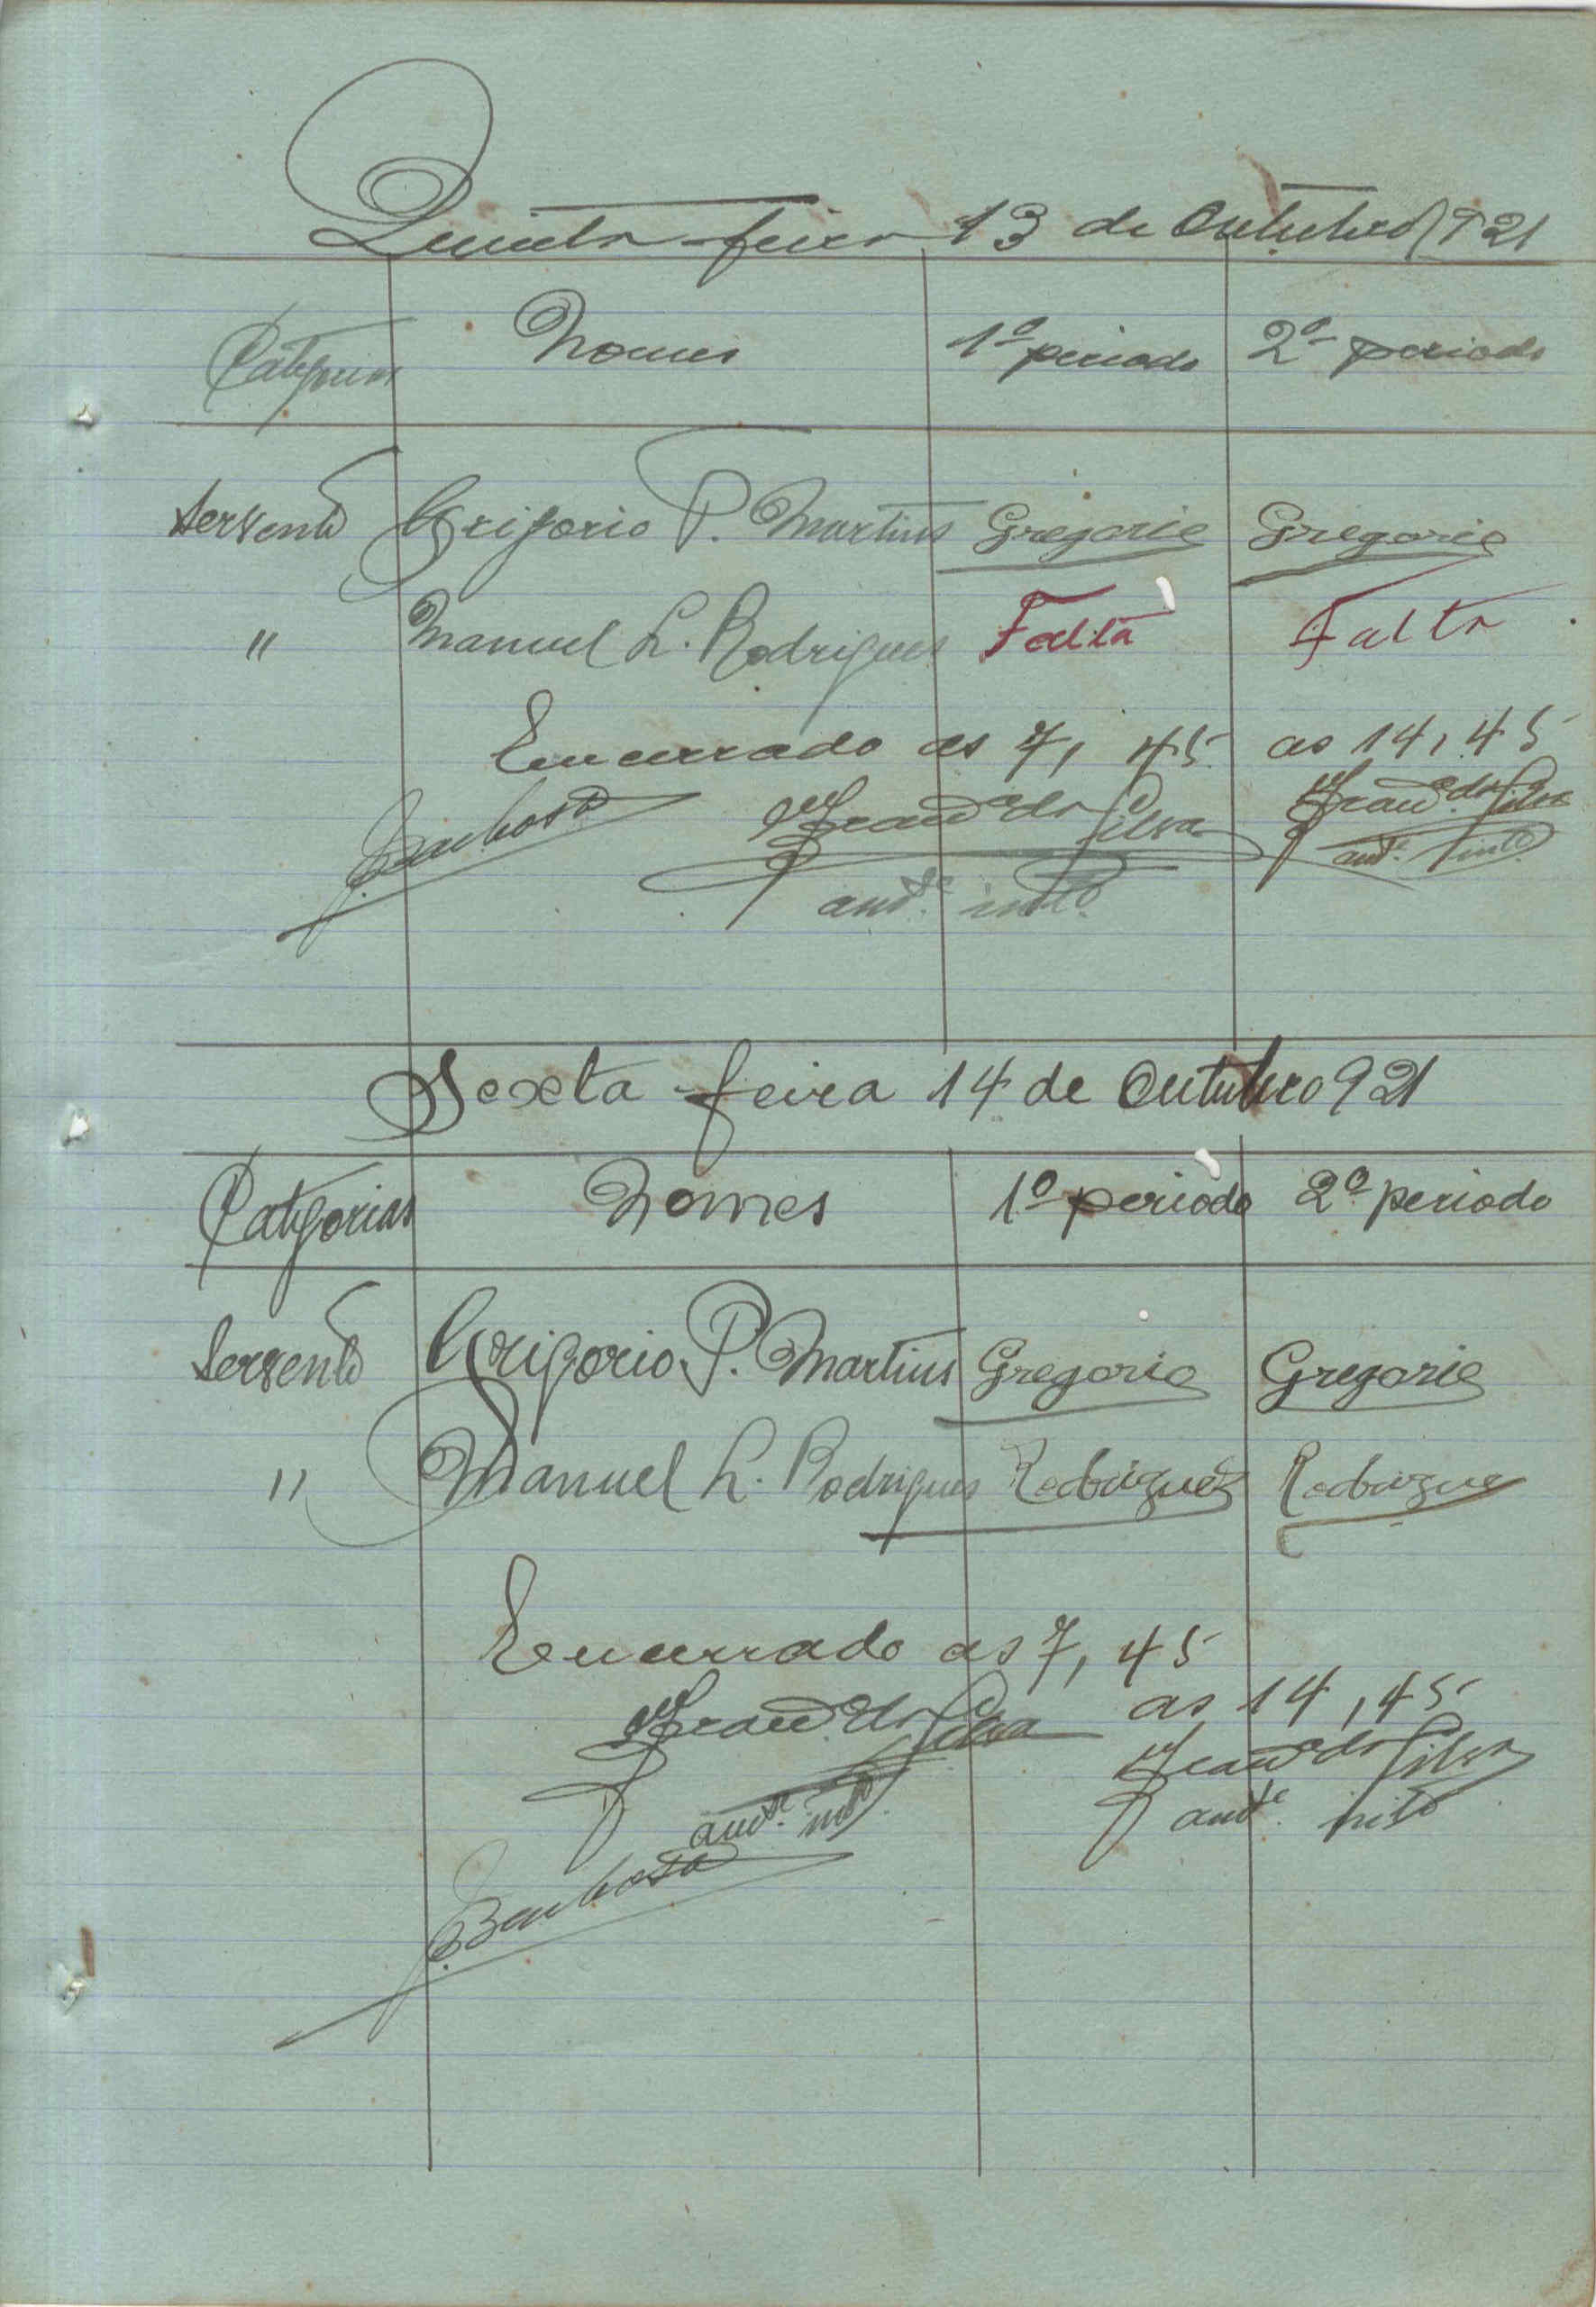 Quinta feira 13 de Outubro 921
Categorias Nomes 1º periodo 2º periodo
Servente Grigorio P. Martins Gregorio Gregorio
" Manuel L. Rodrigues Falta Falta
Encerrado as 7,45 as 14,45
Barbosa Silva Silva
Sexta feira 14 de Outubro 921
Categorias Nomes 1º periodo 2º periodo
Servente Grigorio P. Martins Gregorio Gregorio
" Manuel L. Rodrigues Rodrigues Rodrigue
Encerrado as 7,45
as 14,45
Silva Silva
Barbosa